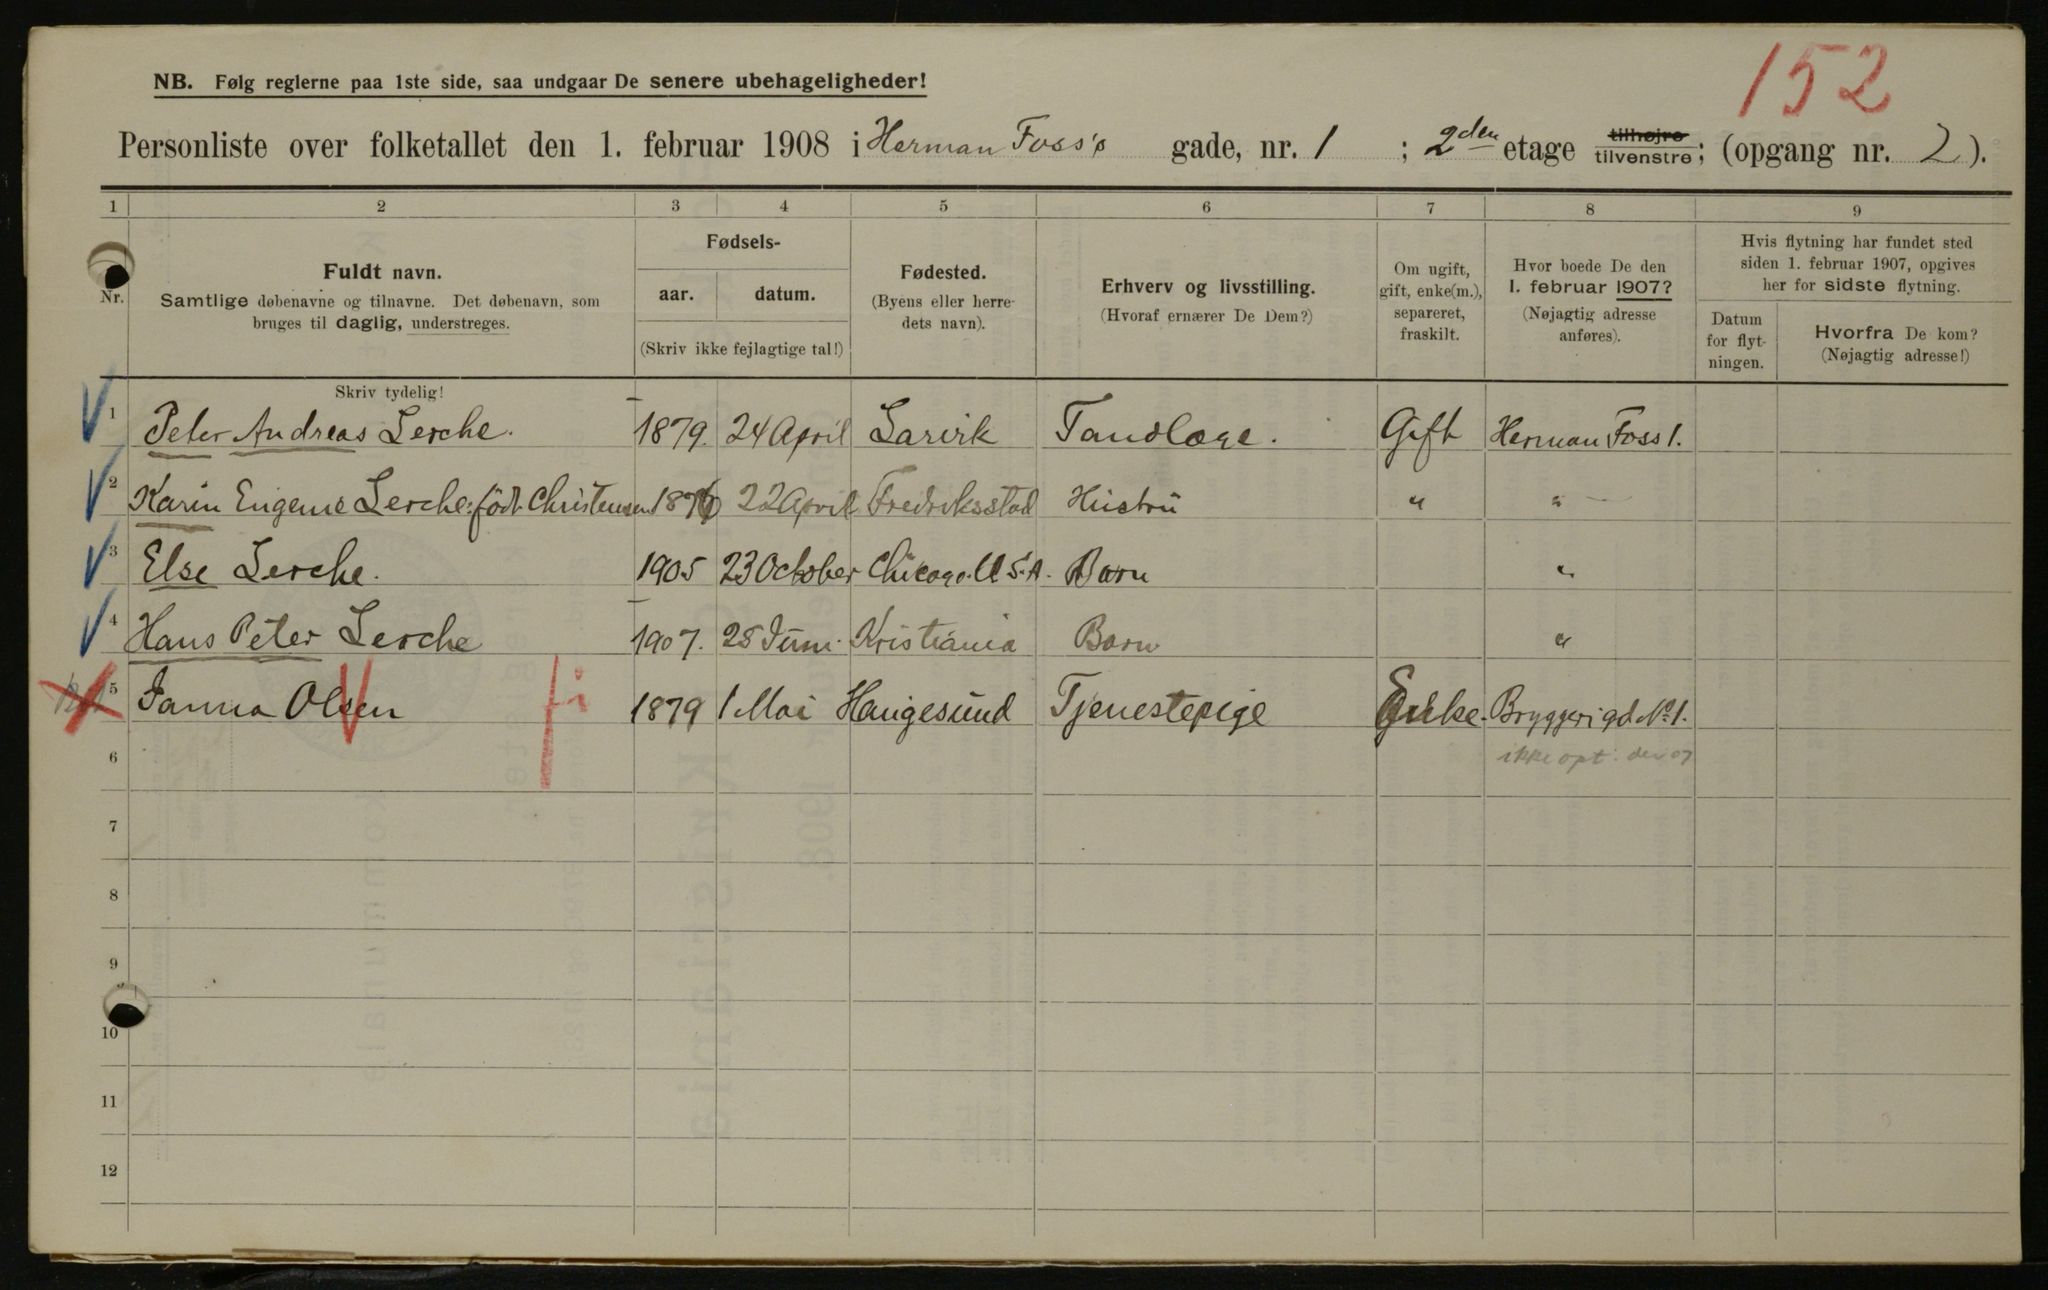 152
NB. Følg reglerne paa 1ste side, saa undgaar De senere ubehageligheder!
Personliste over folketallet den 1. februar 1908 i Herman Foss's gade, nr. 1 ; 2den etage tilhøjre tilvenstre; (opgang nr. 2).
1 2 3 4 5 6 7 8 9
Nr.
Fuldt navn.
Samtlige døbenavne og tilnavne. Det døbenavn, som
bruges til daglig, understreges.
Skriv tydelig!
Fødsels-
aar. datum.
(Skriv ikke fejlagtige tal!)
Fødested.
(Byens eller herre-
dets navn).
Erhverv og livsstilling.
(Hvoraf ernærer De Dem?)
Om ugift,
gift, enke(m.),
separeret,
fraskilt.
Hvor boede De den
1. februar 1907?
(Nøjagtig adresse
anføres).
Hvis flytning har fundet sted
siden 1. februar 1907, opgives
her for sidste flytning.
Datum
for flyt-
ningen.
Hvorfra De kom?
(Nøjagtig adresse!)
1 Peter Andreas Lerche. 1879. 24 April Larvik Tandlæge. Gift Herman Foss 1.
2 Karin Eugenie Lerche: födt Christensen 1876 22 April Fredriksstad Hustru " "
3 Else Lerche. 1905 23 October Chicago. U.S.A. Barn "
4 Hans Peter Lerche 1907. 28 Juni. Kristiania Barn "
5 Janna Olsen 1879 1 Mai Haugesund Tjenestepige Enke. Bryggerigd. No 1.
6 ikke opt. der 07
7
8
9
10
11
12